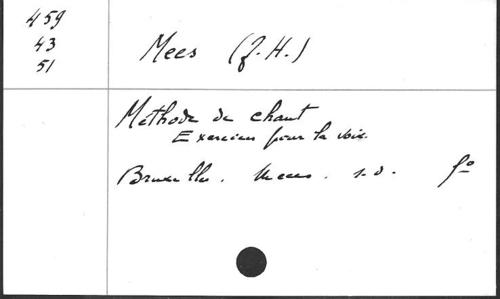 459
43
51
Mees (J.H.)
Méthode de chant
Exercices pour la voix.
Bruxelles. Mees. s.d. fº